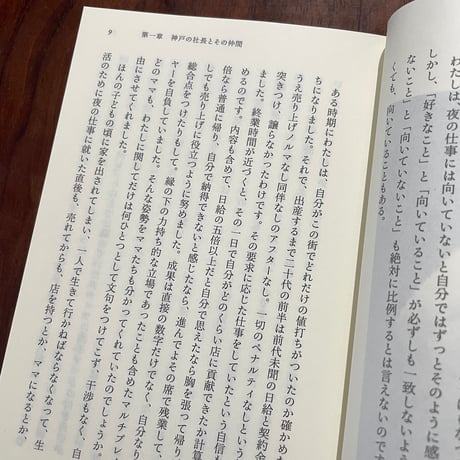 わたしは、夜の仕事には向いていないと自分ではずっとそのように感
しかし、「好きなこと」と「向いていること」が必ずしも一致しないよ
ないこと」と「向いていないこと」も絶対に比例するとは言えないのです
くても、向いていることもある。
9 第一章 神戸の社長とその仲間
ある時期にわたしは、自分がこの街でどれだけの値打ちがついたのか確かめた
ちになりました。それで、出産するまで二十代の前半は前代未聞の日給と契約金
うえ売り上げノルマなし同伴なしのアフターなし。一切のペナルティなしという
突きつけ、譲らなかったわけです。その要求に応じた仕事をしていたという自信
ました。終業時間が近づくと、その一日で自分がどのくらい店に貢献できたか計算
めるのです。内容も含めて、日給の五倍以上だと自分で思えたなら胸を張って帰り
倍なら普通に帰り、自分で納得できないと感じたなら、進んでよその席で残業して、
しでも売り上げに役立つように努めました。成果は直接の数字だけでなく、自分なり
総合点をつけたりもして。縁の下の力持ち的な立場であったことも含めたマルチプレ
ヤーを自負していました。そんな姿勢をママたちも分かってくれていたのでしょうか。
どのママも、わたしに関してだけは何ひとつとして文句をつけてこず、干渉もなく、自
由にさせてくれました。
ほんの子どもの頃に家を出されてしまい、一人で生きて行かねばならなくなって、生
活のために夜の仕事に就いた直後も、売れてからも、店を持つとか、ママになるとか